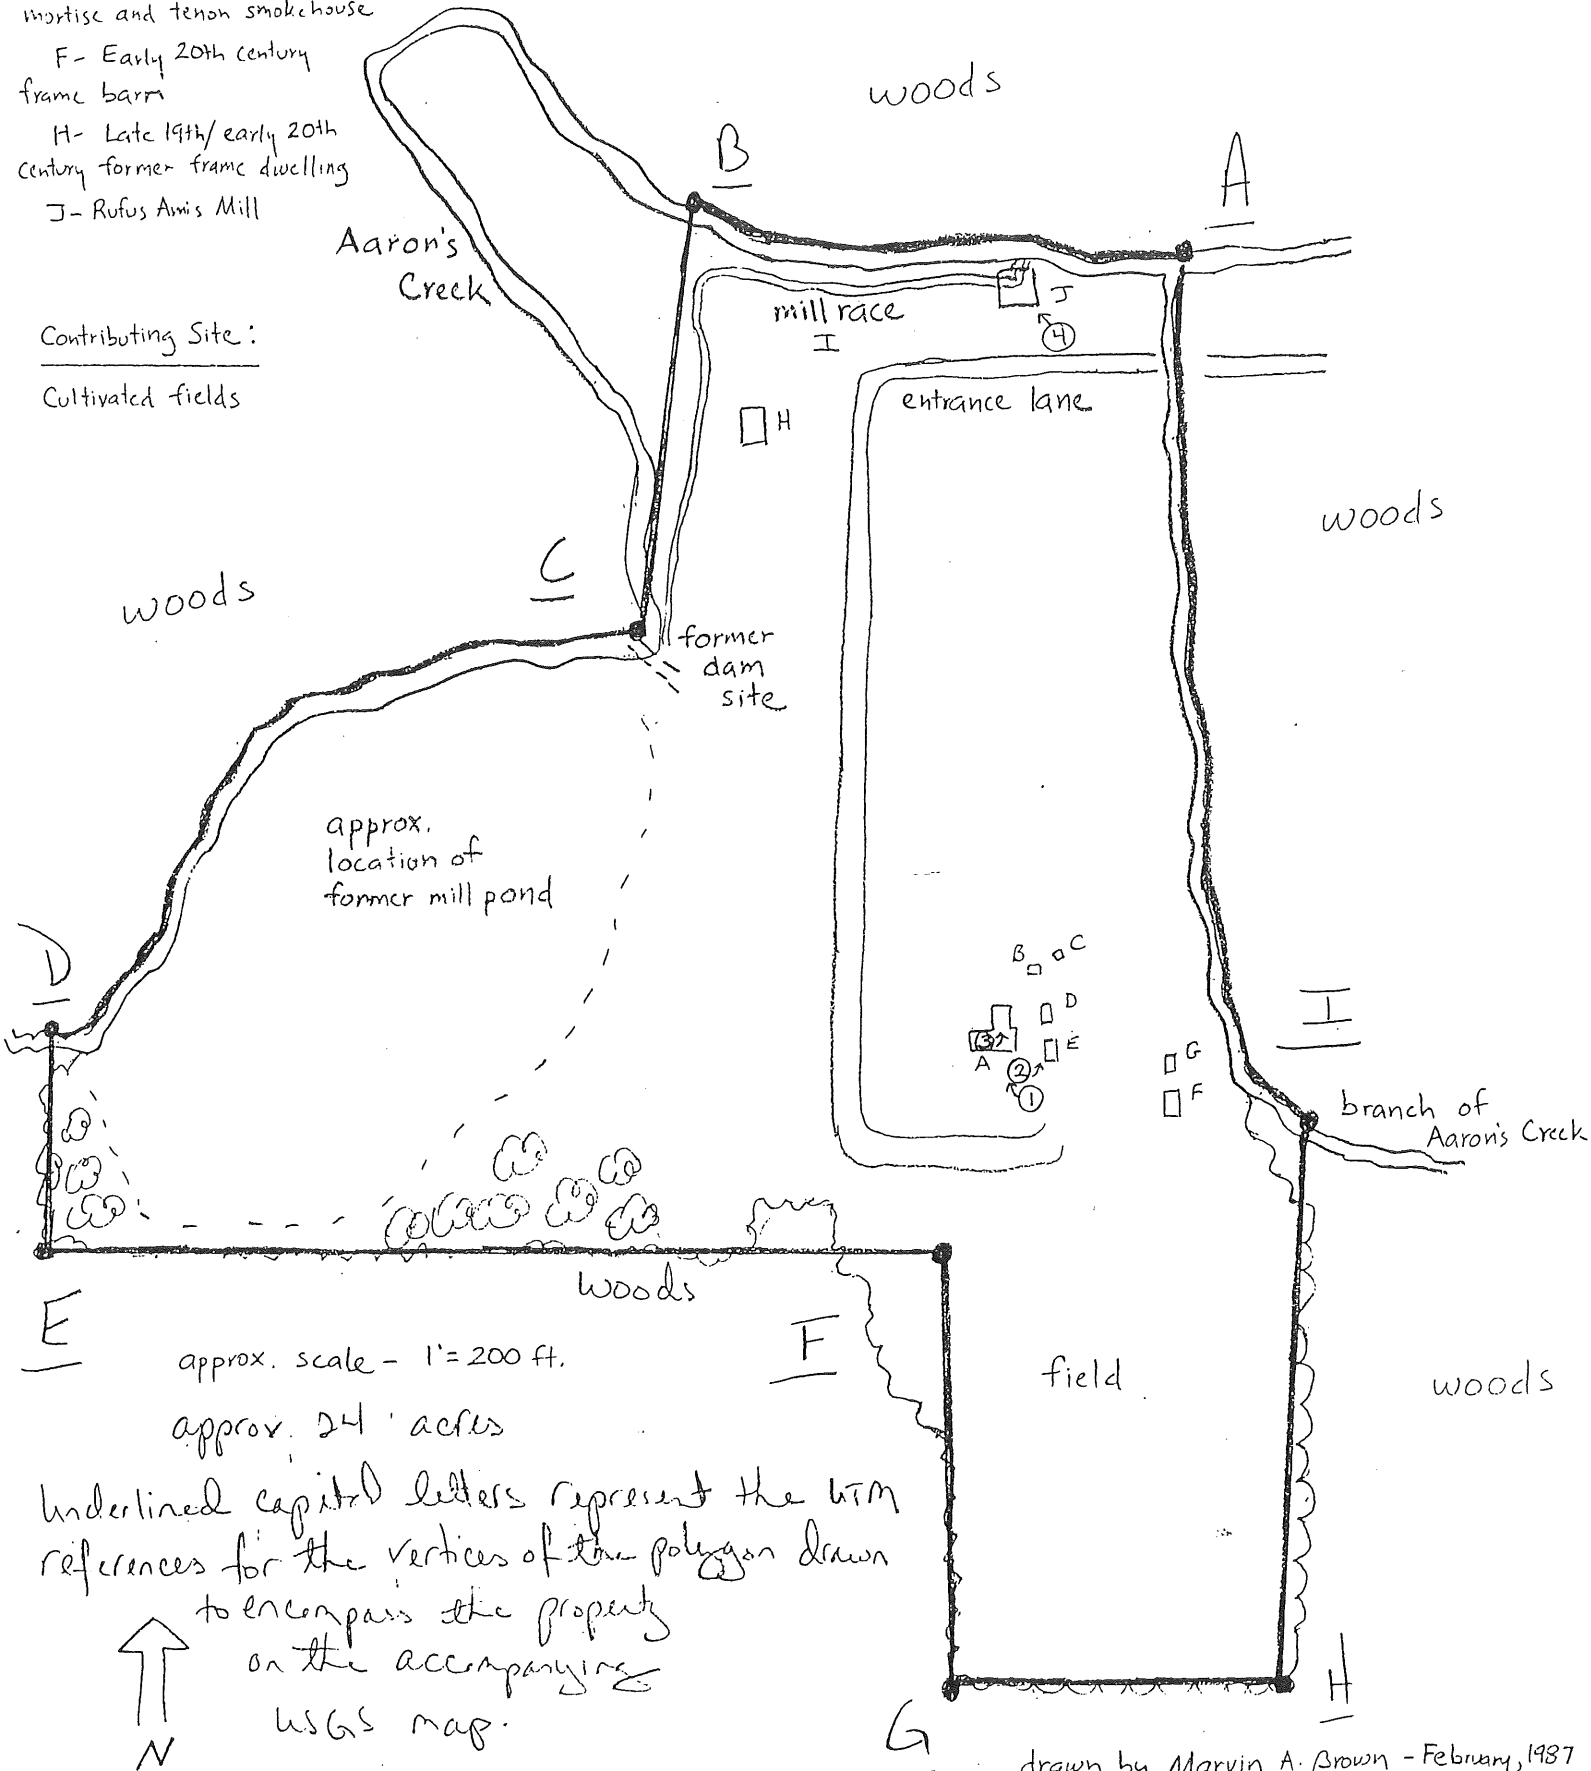 mortise and tenon smokehouse
F- Early 20th century
frame barn
H- Late 19th/early 20th
century former frame dwelling
J- Rufus Amis Mill
Contributing Site:
Cultivated fields
woods
B
A
Aaron's
Creek
mill race
I
J
4
entrance lane
H
woods
C
woods
former
dam
site
approx.
location of
former mill pond
D
B
C
D
E
3
A
2
1
G
F
I
branch of
Aaron's Creek
woods
E
F
approx. scale - 1"=200 ft.
field
woods
approx. 24 acres
Underlined capital letters represent the UTM
references for the vertices of the polygon drawn
to encompass the property
on the accompanying
USGS map.
N
G
H
drawn by Marvin A. Brown - February, 1987